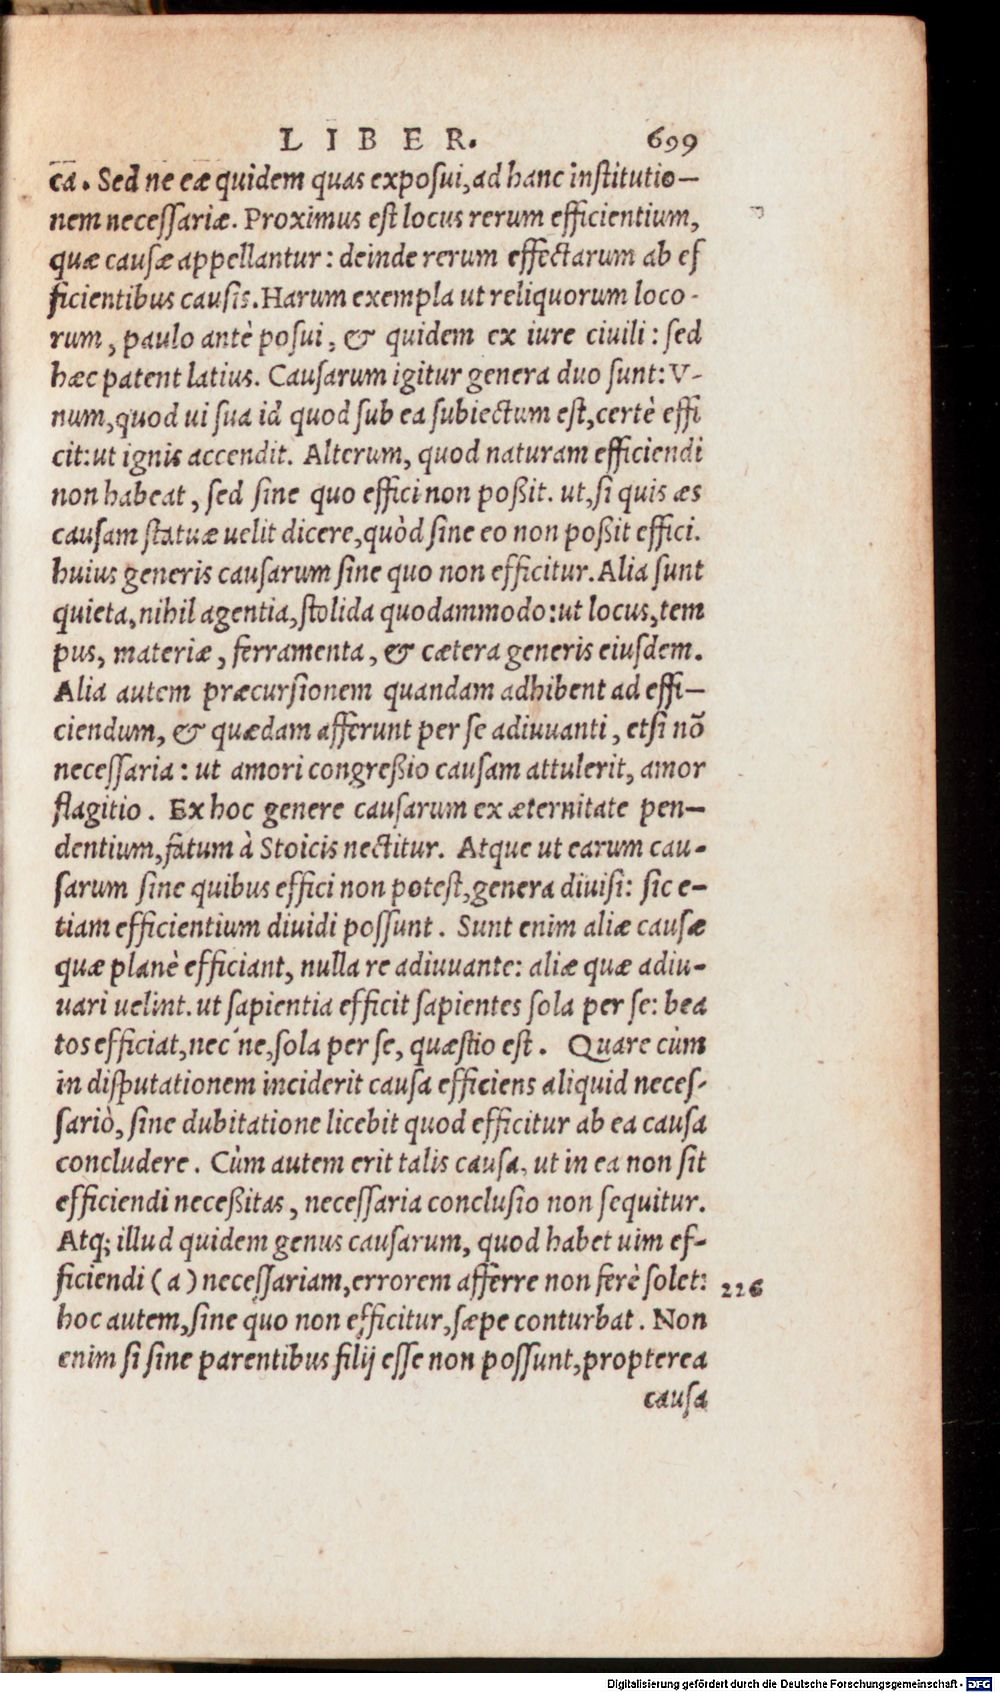 LIBER. 699
ca. Sed ne eæ quidem quas exposui, ad hanc institutio-
nem necessariæ. Proximus est locus rerum efficientium,
quæ causæ appellantur: deinde rerum effectarum ab ef
ficientibus causis. Harum exempla ut reliquorum loco-
rum, paulo antè posui, & quidem ex iure ciuili: sed
hæc patent latius. Causarum igitur genera duo sunt: V-
num, quod ui sua id quod sub ea subiectum est, certè effi
cit: ut ignis accendit. Alterum, quod naturam efficiendi
non habeat, sed sine quo effici non poßit. ut, si quis æs
causam statuæ uelit dicere, quòd sine eo non poßit effici.
huius generis causarum sine quo non efficitur. Alia sunt
quieta, nihil agentia, stolida quodammodo: ut locus, tem
pus, materiæ, ferramenta, & cætera generis eiusdem.
Alia autem præcursionem quandam adhibent ad effi-
ciendum, & quædam afferunt per se adiuuanti, etsi nõ
necessaria: ut amori congreßio causam attulerit, amor
flagitio. Ex hoc genere causarum ex æternitate pen-
dentium, fatum à Stoicis nectitur. Atque ut earum cau-
sarum sine quibus effici non potest, genera diuisi: sic e-
tiam efficientium diuidi possunt. Sunt enim aliæ causæ
quæ planè efficiant, nulla re adiuuante: aliæ quæ adiu-
uari uelint. ut sapientia efficit sapientes sola per se: bea
tos efficiat, nec'ne, sola per se, quæstio est. Quare cùm
in disputationem inciderit causa efficiens aliquid neces-
sariò, sine dubitatione licebit quod efficitur ab ea causa
concludere. Cùm autem erit talis causa, ut in ea non sit
efficiendi neceßitas, necessaria conclusio non sequitur.
Atq; illud quidem genus causarum, quod habet uim ef-
ficiendi (a) necessariam, errorem afferre non ferè solet: 226
hoc autem, sine quo non efficitur, sæpe conturbat. Non
enim si sine parentibus filij esse non possunt, propterea
causa
Digitalisierung gefördert durch die Deutsche Forschungsgemeinschaft - DFG